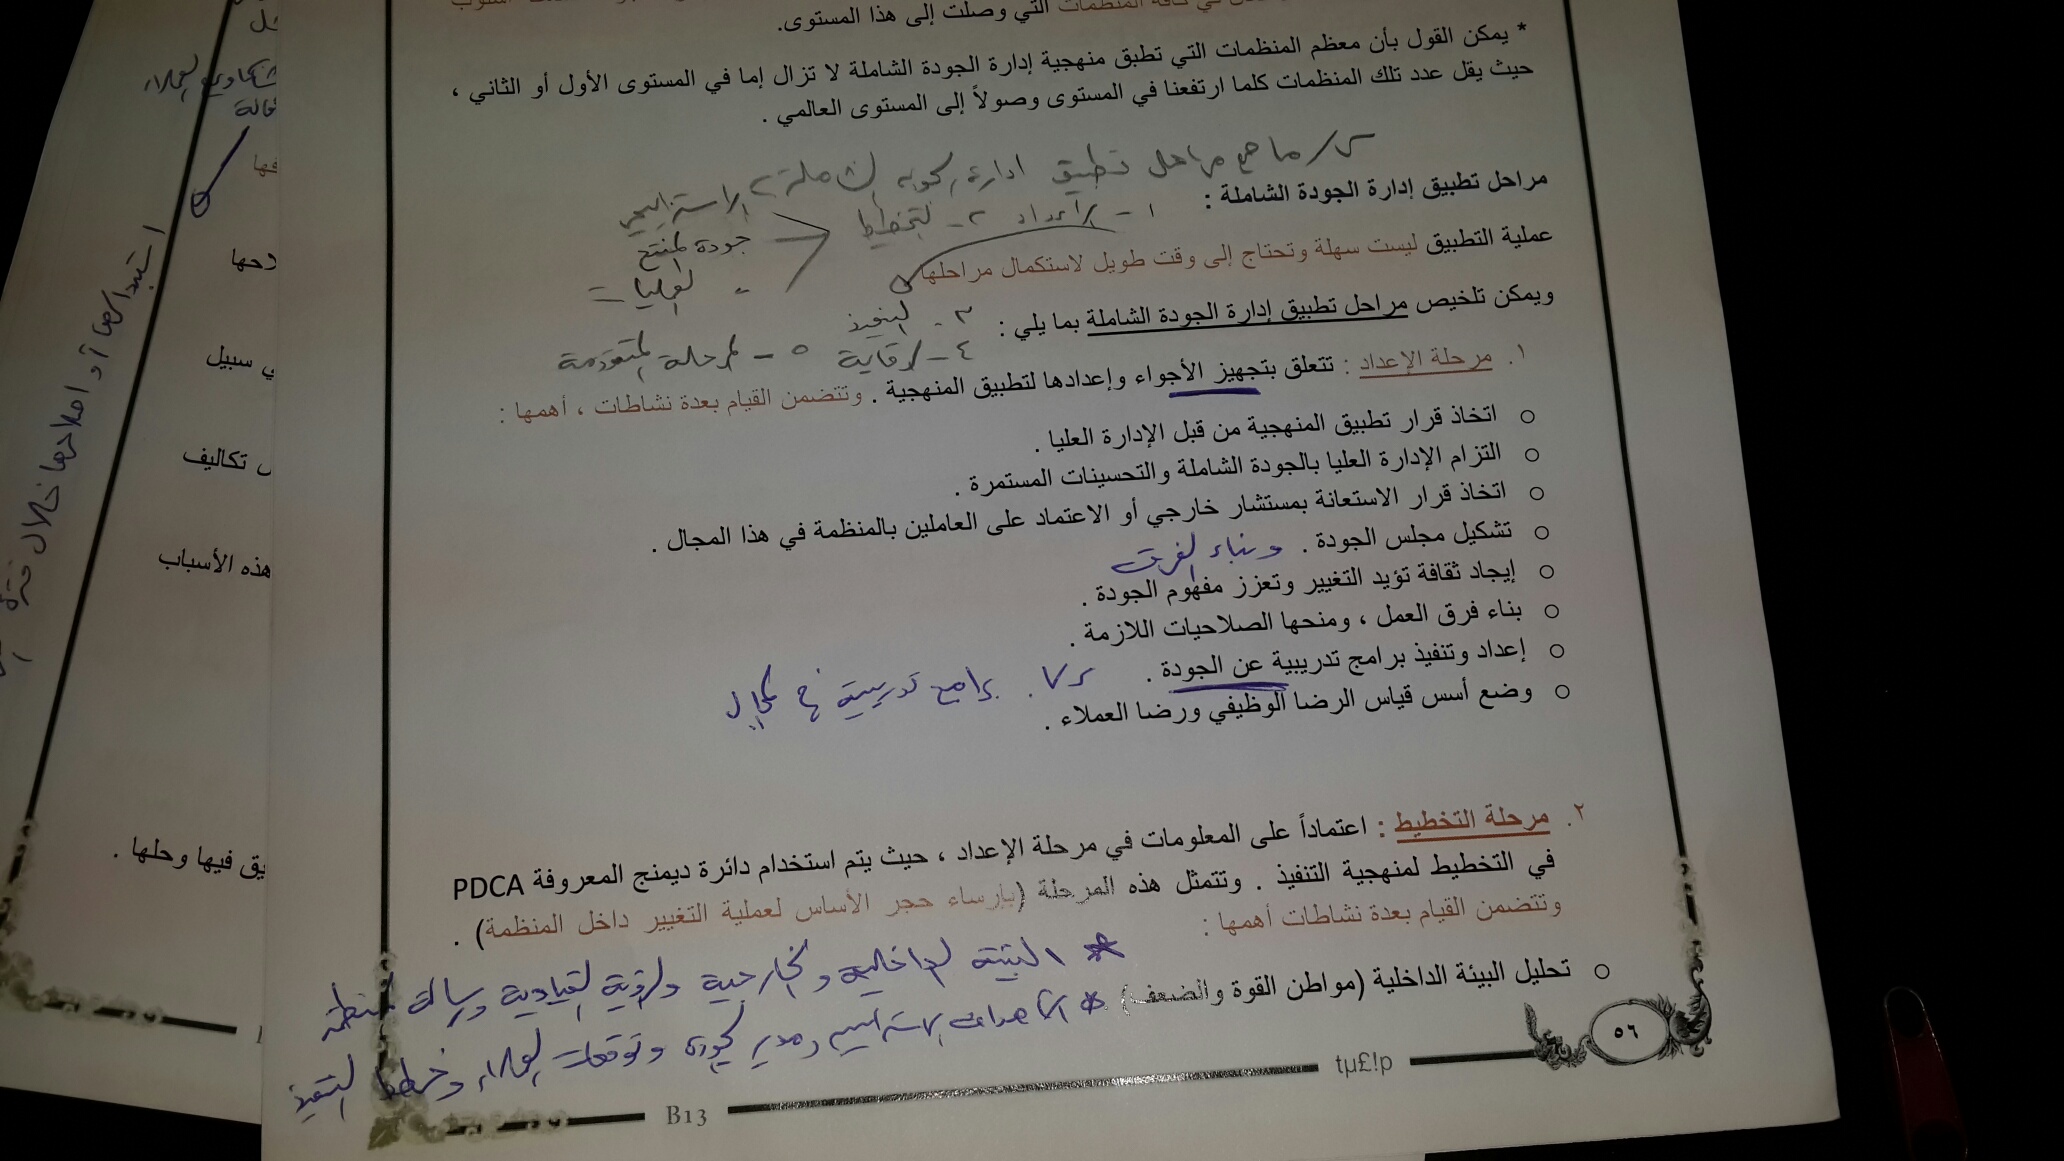 التي وصلت إلى هذا المستوى.
* يمكن القول بأن معظم المنظمات التي تطبق منهجية إدارة الجودة الشاملة لا تزال إما في المستوى الأول أو الثاني ،
حيث يقل عدد تلك المنظمات كلما ارتفعنا في المستوى وصولاً إلى المستوى العالمي .
س/ ما هي مراحل تطبيق ادارة الجودة الشاملة
مراحل تطبيق إدارة الجودة الشاملة :
١- الاعداد ٢- التخطيط
الاستراتيجي
جودة المنتج
العمليات
عملية التطبيق ليست سهلة وتحتاج إلى وقت طويل لاستكمال مراحلها
٣- التنفيذ
ويمكن تلخيص مراحل تطبيق إدارة الجودة الشاملة بما يلي :
٤- الرقابة ٥- المرحلة المتقدمة
١. مرحلة الإعداد : تتعلق بتجهيز الأجواء وإعدادها لتطبيق المنهجية . وتتضمن القيام بعدة نشاطات ، أهمها :
○ اتخاذ قرار تطبيق المنهجية من قبل الإدارة العليا .
○ التزام الإدارة العليا بالجودة الشاملة والتحسينات المستمرة .
○ اتخاذ قرار الاستعانة بمستشار خارجي أو الاعتماد على العاملين بالمنظمة في هذا المجال .
○ تشكيل مجلس الجودة . وبناء الفرق
○ إيجاد ثقافة تؤيد التغيير وتعزز مفهوم الجودة .
○ بناء فرق العمل ، ومنحها الصلاحيات اللازمة .
○ إعداد وتنفيذ برامج تدريبية عن الجودة . برامج تدريبية في
○ وضع أسس قياس الرضا الوظيفي ورضا العملاء .
٢. مرحلة التخطيط : اعتماداً على المعلومات في مرحلة الإعداد ، حيث يتم استخدام دائرة ديمنج المعروفة PDCA
في التخطيط لمنهجية التنفيذ . وتتمثل هذه المرحلة (بإرساء حجر الأساس لعملية التغيير داخل المنظمة) .
وتتضمن القيام بعدة نشاطات أهمها :
* البيئة الداخلية والخارجية والرؤية القيادية ورسالة المنظمة
○ تحليل البيئة الداخلية (مواطن القوة والضعف)
* الاهداف الاستراتيجية ومدير الجودة وتوقعات العملاء وخطط التنفيذ
٥٦
tµ£!p
B13
شكاوي العملاء
في سبيل
تكاليف
هذه الأسباب
فيها وحلها .
استبدالها أو اصلاحها خلال فترة